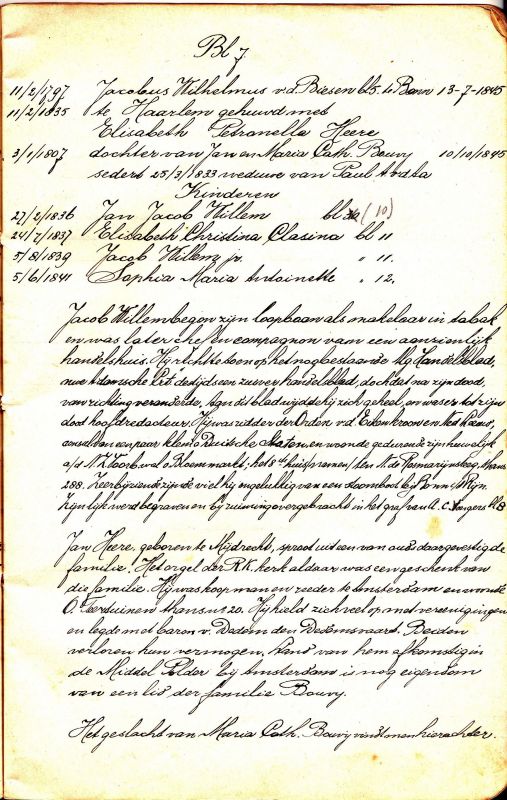 Bl 7.
11/2/1797 Jacobus Wilhelmus v.d. Biesen bl 5. te Bonn 13-7-1845
11/2/1835 te Haarlem gehuwd met
Elisabeth Petronella Heere
3/1/1807 dochter van Jan en Maria Cath. Bouvy 10/10/1845
sedert 25/3/1833 weduwe van Paul
Kinderen
27/2/1836 Jan Jacob Willem bl (10)
24/7/1837 Elisabeth Christina Clasina bl 11
5/8/1839 Jacob Willem jr. " 11.
5/6/1841 Sophia Maria Antoinette " 12.
Jacob Willem begon zijn loopbaan als makelaar in tabak
en was later chef en compagnon van een aanzienlijk
handelshuis. Hij richtte toen op het nog bestaande Alg. Handelsblad,
destijds een zuiver handelsblad, doch dat na zijn dood,
van richting veranderde. Aan dit blad wijdde hij zich geheel, en was er tot zijn
dood hoofdredacteur. Hij was ridder der Orden v.d. Eikenkroon en Ned. Leeuw,
en van een paar kleine Duitsche Staten, en woonde gedurende zijn huwelijk
a/d N.Z. Voorb. wal o. Bloemmarkt; het 8ste huis ten N. de Rosmarijnsteeg, thans
288. Zeer bijziende zijnde viel hij ongelukkig van een stoomboot bij Bonn a/Rijn.
Zijn lijk werd begraven en bij ruiming overgebracht in het graf van A.C.
Jan Heere, geboren te Mijdrecht, sproot uit een van ouds daar gevestigde
familie. Het orgel der R.K. kerk aldaar was een geschenk van
die familie. Hij was koopman en reeder te Amsterdam en woonde
O. Teertuinen thans no 20. Hij hield zich veel op met vereenigingen
en legde met baron v. Dedem den Dedemsvaart. Beiden
verloren hun vermogen. Land van hem afkomstig in
de Middel Polder bij Amsterdam is nog eigendom
van een lid der familie Bouvy.
Het geslacht van Maria Cath. Bouvy vindt men hierachter.